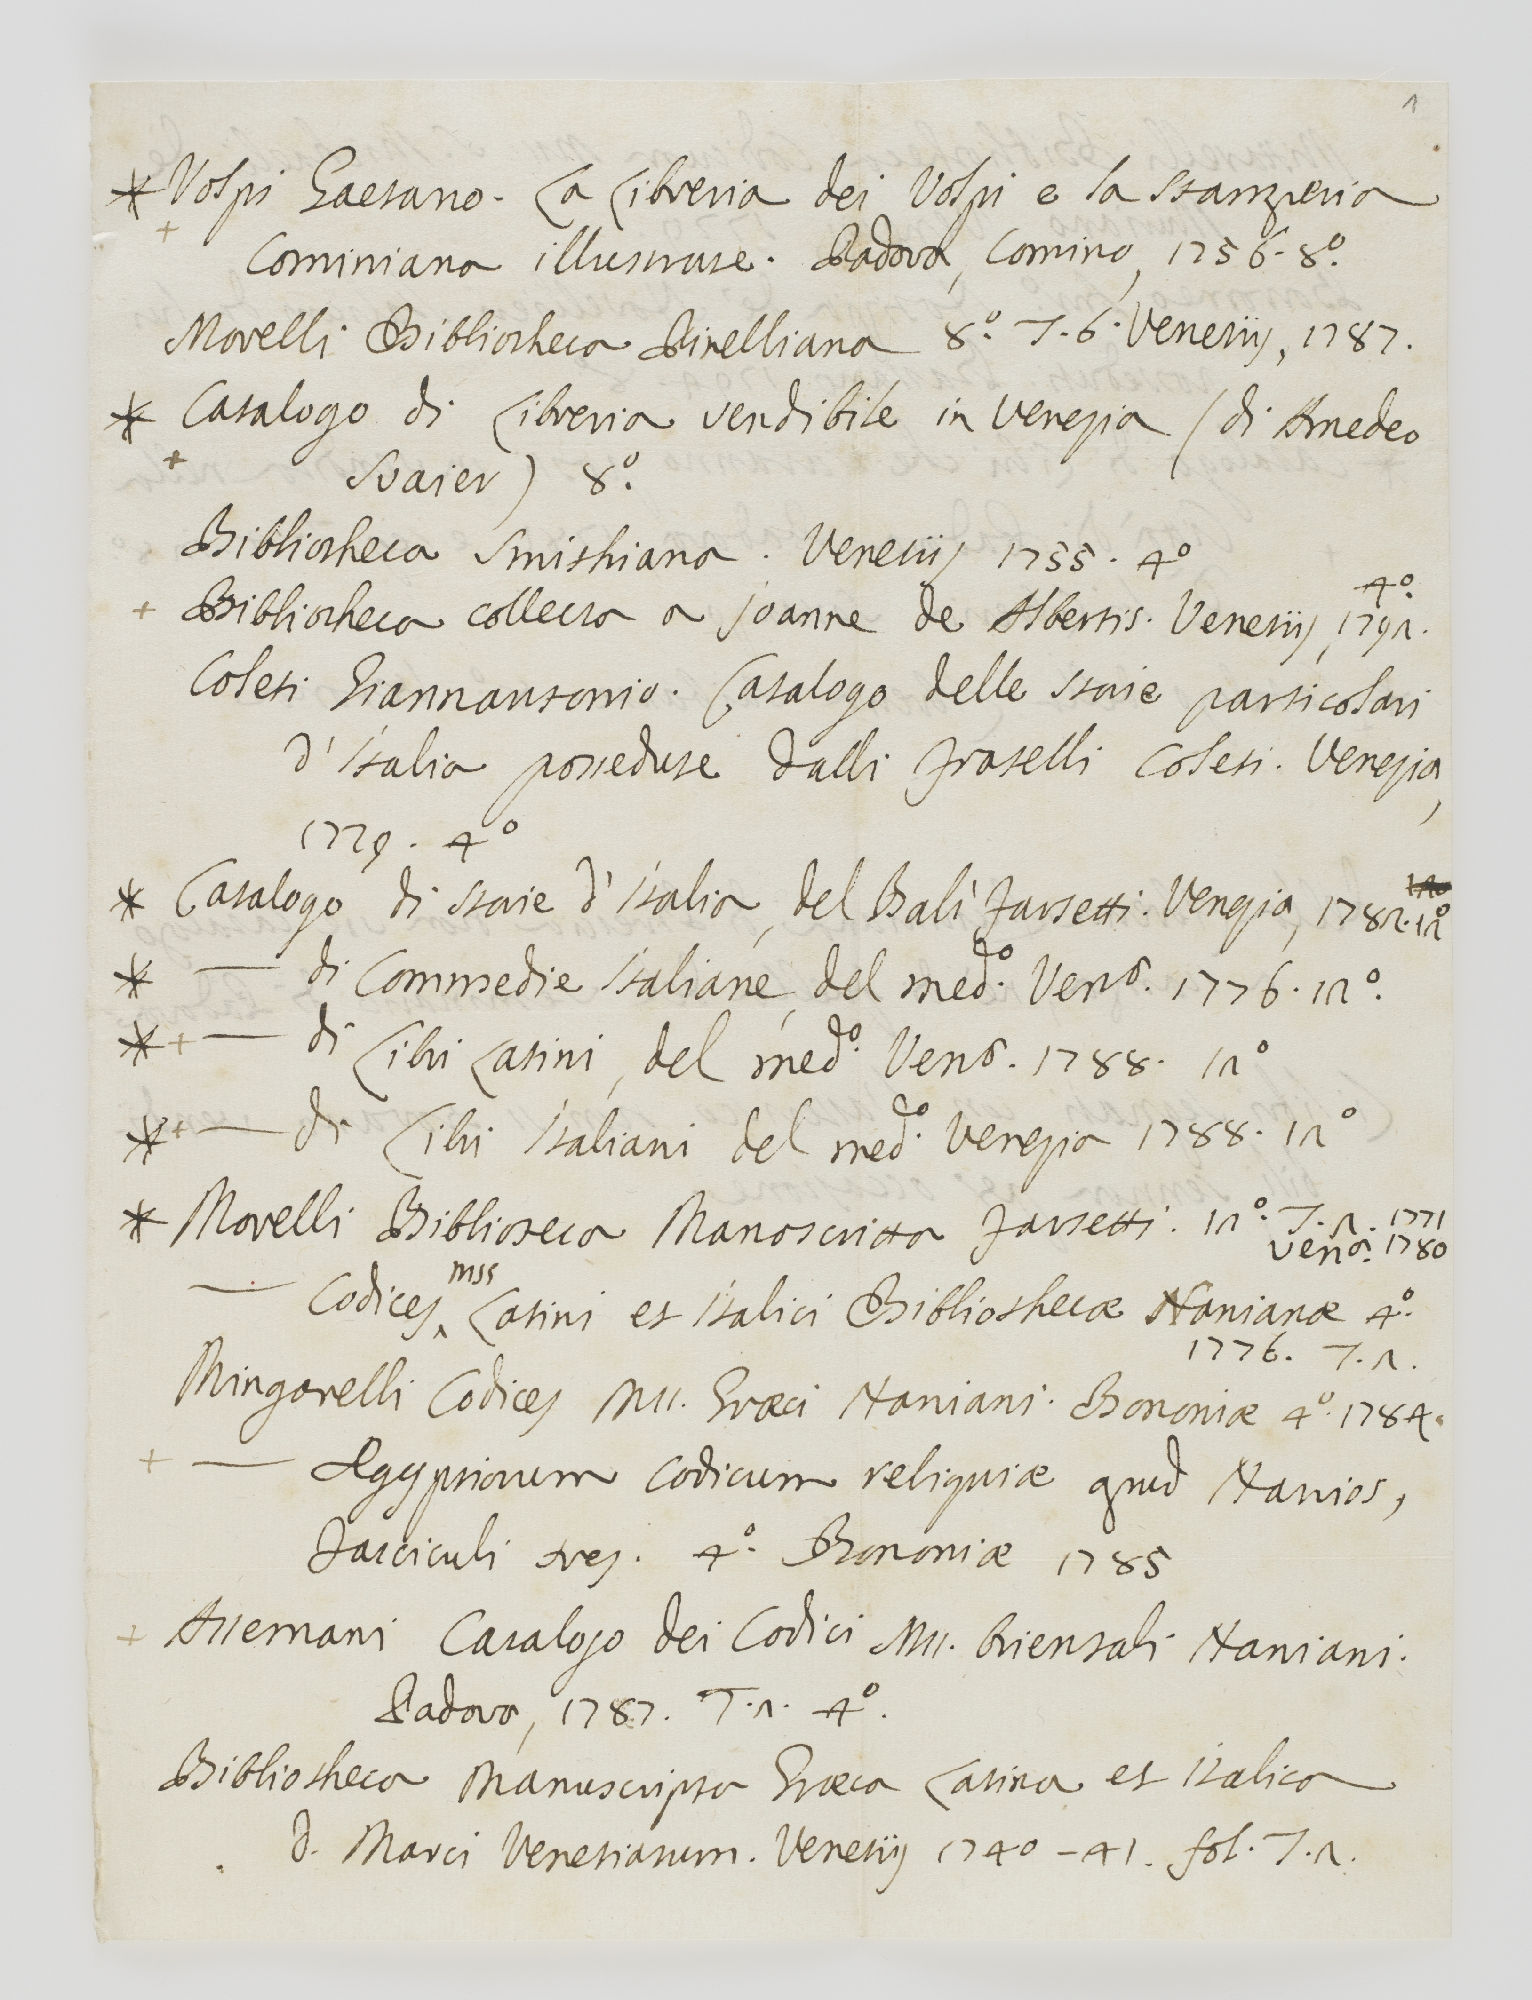 1
* Volpi Gaetano. La Libreria dei Volpi e la Stamperia
+ Cominiana illustrate. Padova, Comino, 1756. 8º.
Morelli Bibliotheca Pinelliana 8º. T. 6. Venetiis, 1787.
* Catalogo di Libreria vendibile in Venezia (di Amedeo
+ Svaier) 8º.
Bibliotheca Smithiana. Venetiis 1755. 4º
+ Bibliotheca collecta a Joanne de Albertis. Venetiis, 1792. 4º.
Coleti Giannantonio. Catalogo delle Storie particolari
d'Italia possedute dalli fratelli Coleti. Venezia,
1779. 4º
* Catalogo di storie d'Italia, del Balì Farsetti. Venezia, 1782. 12º
* — di Commedie Italiane, del medº. Venª. 1776. 12º.
* + — di Libri Latini, del medº. Venª. 1788. 12º
* + — di Libri Italiani del medº. Venezia 1788. 12º
* Morelli Biblioteca Manoscritta Farsetti. 12º. T. 2. 1771
Venª. 1780
— Codices mss Latini et Italici Bibliothecæ Nanianæ 4º.
1776. T. 2.
Mingarelli Codices Mss. Græci Naniani. Bononiæ 4º. 1784.
+ — Ægyptiorum codicum reliquiæ apud Nanios,
Fasciculi tres. 4º. Bononiæ 1785
+ Assemani Catalogo dei Codici Mss. Orientali Naniani.
Padova, 1787. T. 2. 4º.
Bibliotheca Manuscripta Græca Latina et Italica
d. Marci Venetiarum. Venetiis 1740-41. fol. T. 2.